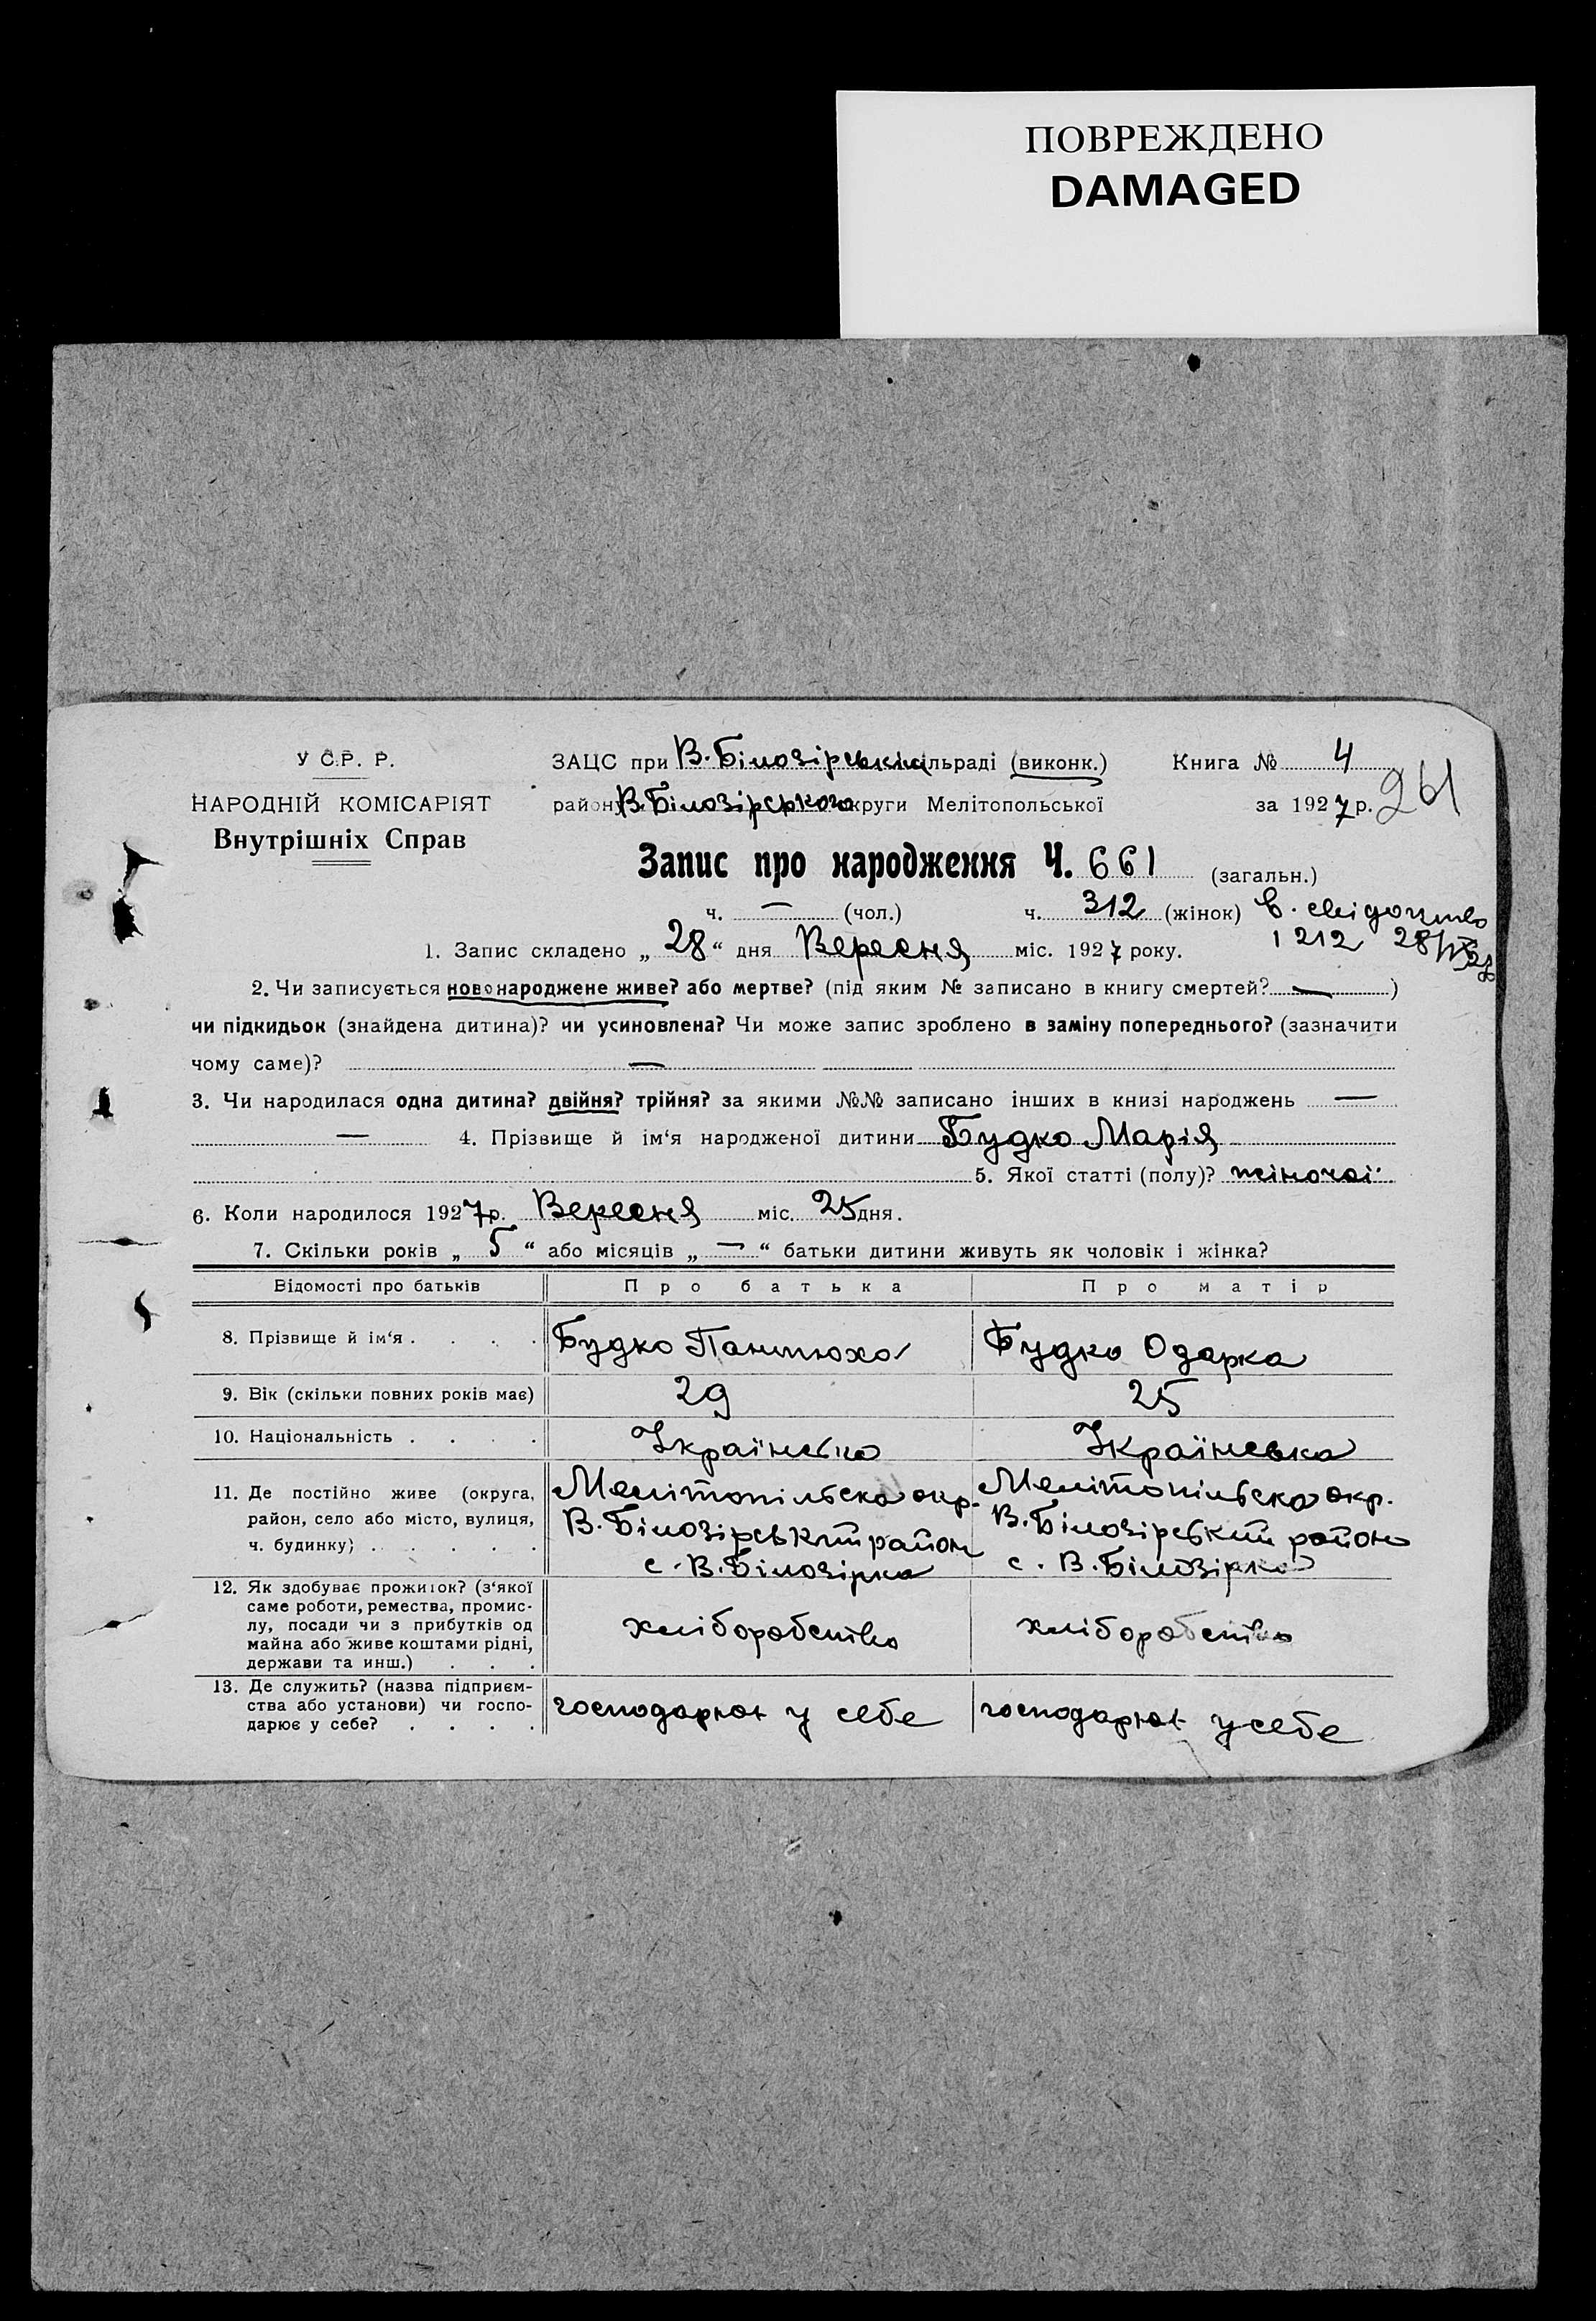 ПОВРЕЖДЕНО
DAMAGED
У С.Р. Р.
НАРОДНІЙ КОМІСАРІЯТ
Внутрішніх Справ
ЗАЦС при В.-Білозірській сільраді (виконк.)
району В.-Білозірського округи Мелітопольської
Книга № 4
за 1927 р. 261
Запис про народження Ч. 661 (загальн.)
ч. — (чол.) ч. 312 (жінок)
1212 28/IX 27
1. Запис складено „ 28 “ дня Вересня міс. 1927 року.
2. Чи записується новонароджене живе? або мертве? (під яким № записано в книгу смертей? — )
чи підкидьок (знайдена дитина)? чи усиновлена? Чи може запис зроблено в заміну попереднього? (зазначити
чому саме)? —
3. Чи народилася одна дитина? двійня? трійня? за якими №№ записано інших в книзі народжень —
— 4. Прізвище й ім‘я народженої дитини Будко Марія
5. Якої статті (полу)? жіночої
6. Коли народилося 1927 р. Вересня міс. 25 дня.
7. Скільки років „ 5 “ або місяців „ — “ батьки дитини живуть як чоловік і жінка?
Відомості про батьків Про батька Про матір
8. Прізвище й ім‘я . . . . Будко Пантюха Будко Одарка
9. Вік (скільки повних років має) 29 25
10. Національність . . . . Українська Українська
11. Де постійно живе (округа,
район, село або місто, вулиця,
ч. будинку) . . . . . .
Мелітопільска окр.
В.-Білозірський район
с. В.-Білозірка
Мелітопільска окр.
В.-Білозірський район
с. В.-Білозірка
12. Як здобуває прожиток? (з‘якої
саме роботи, ремества, промис-
лу, посади чи з прибутків од
майна або живе коштами рідні,
держави та инш.) . . .
хліборобство хліборобство
13. Де служить? (назва підприєм-
ства або установи) чи госпо-
дарює у себе? . . . .
господарює у себе господарює у себе